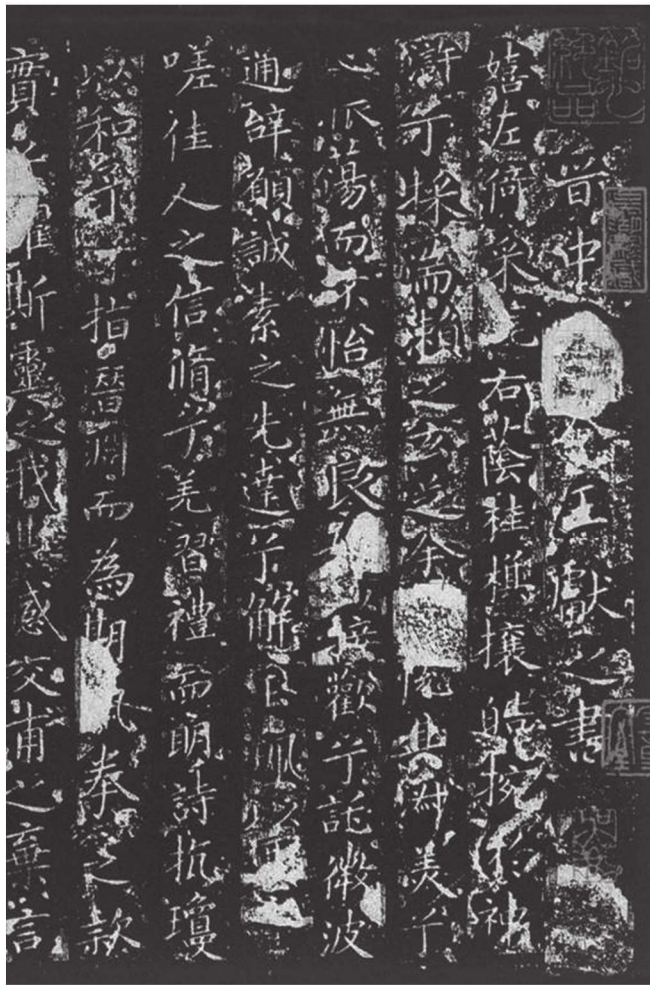 晉中令王獻之書
嬉左倚采旄右蔭桂旗攘皓捥於神
滸兮採湍瀨之玄芝余悅其淑美兮
心振蕩而不怡無良以接歡兮託微波
通辭願誠素之先達兮解玉珮以要之
嗟佳人之信脩兮羌習禮而明詩抗瓊
以和予兮指潛淵而為期執拳之款
實兮懼斯靈之我欺感交甫之棄言